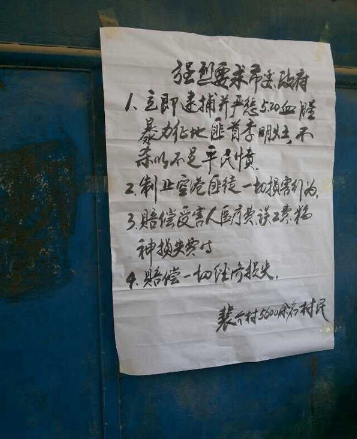 强烈要求市委、政府
1. 立即逮捕并严惩5.20血腥
暴力征地匪首李明, 不
杀以不足平民愤.
2. 制止空港匪徒一切损害行为.
3. 赔偿受害人医疗费误工费精
神损失费
4. 赔偿一切经济损失.
裴介村5600余名村民